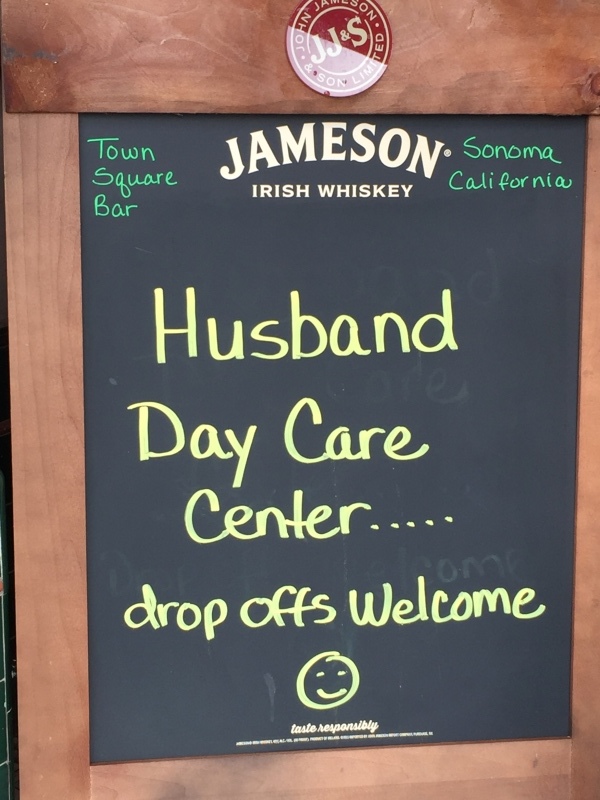 JOHN JAMESON
JJ&S
& SON LIMITED
Town
Square
Bar
JAMESON®
IRISH WHISKEY
Sonoma
California
Husband
Day Care
Center.....
drop offs Welcome
taste responsibly